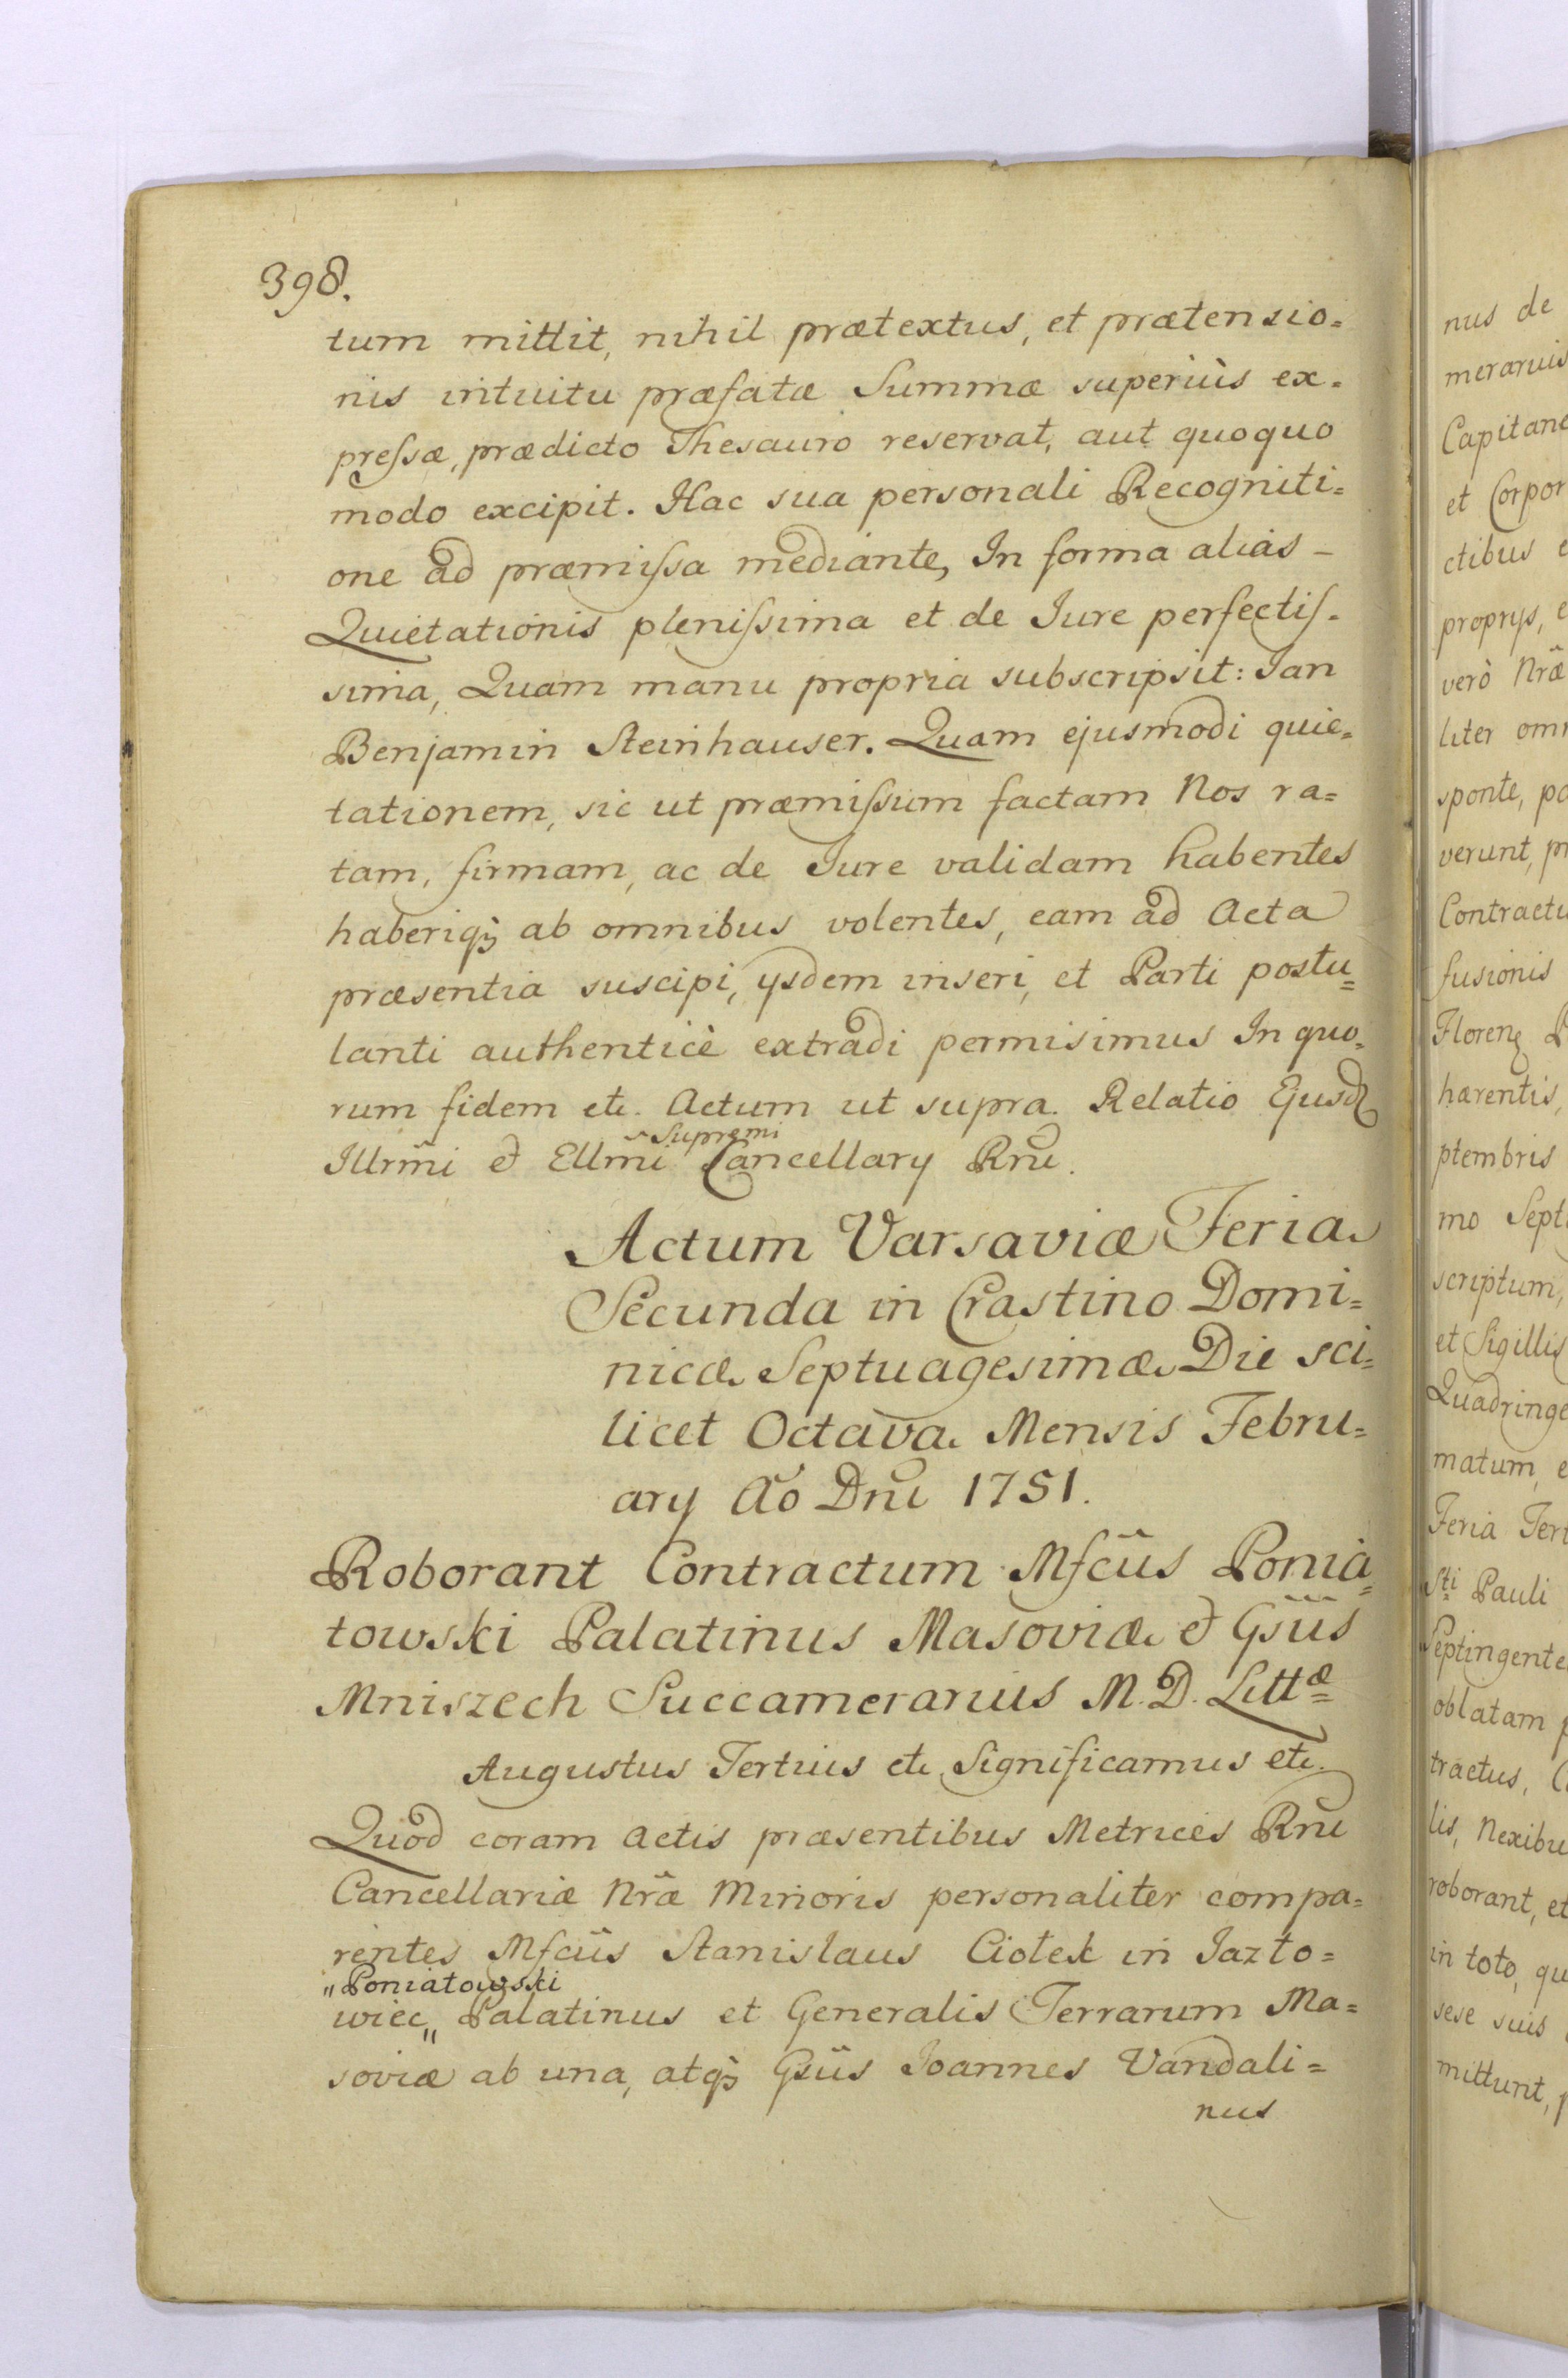 398.
tum mittit, nihil prætextus, et prætensio=
nis intuitu præfatæ Summæ superiùs ex=
preſsæ, prædicto Thesauro reservat, aut quoquo
modo excipit. Hac sua personali Recogniti=
one ad præmiſsa mediante, In forma alias –
Quietationis pleniſsima et de Iure perfectiſ=
sima, Quam manu propria subscripsit: Ian
Benjamin Steinhauser. Quam ejusmodi quie=
tationem, sic ut præmiſsum factam Nos ra=
tam, firmam, ac de Iure validam habentes
haberiqꝫ ab omnibus volentes, eam ad Acta
præsentia suscipi, ysdem inseri, et Parti postu=
lanti authenticè extradi permisimus In quo=
rum fidem etc. Actum ut supra. Relatio Ejusd
Supremi
Illrm̃i et Ellm̃i Cancellary Rñi.
Actum Varsaviæ Feria
Secunda in Crastino Domi=
nicæ Septuagesimæ Die sci=
licet Octava Mensis Febru=
ary Ão Dñi 1751.
Roborant Contractum Mfcũs Ponia=
towski Palatinus Masoviæ et Gsũs
Mniszech Succamerarius M. D. Littæ
Augustus Tertius etc. Significamus etc.
Quod coram Actis præsentibus Metrices Rñi
Cancellariæ Nræ̃ Minoris personaliter compa=
rentes Mfcũs Stanislaus Ciołek in Jazło=
"Poniatowski
wiec" Palatinus et Generalis Terrarum Ma=
soviæ ab una, atqꝫ Gsũs Ioannes Vandali=
nus
nus de
Capitane
et Corpor
ctibus
proprys,
verò Nræ̃
liter
sponte,
verunt,
Contractu
fusionis
Floren
hærentis,
ptembris
mo
scriptum,
et Sigillis
Quadringe
matum,
Feria
Sti Pauli
Septingente
oblatam
tractus,
lis, Nexibu
roborant, et
in toto,
sese suis
mittunt,